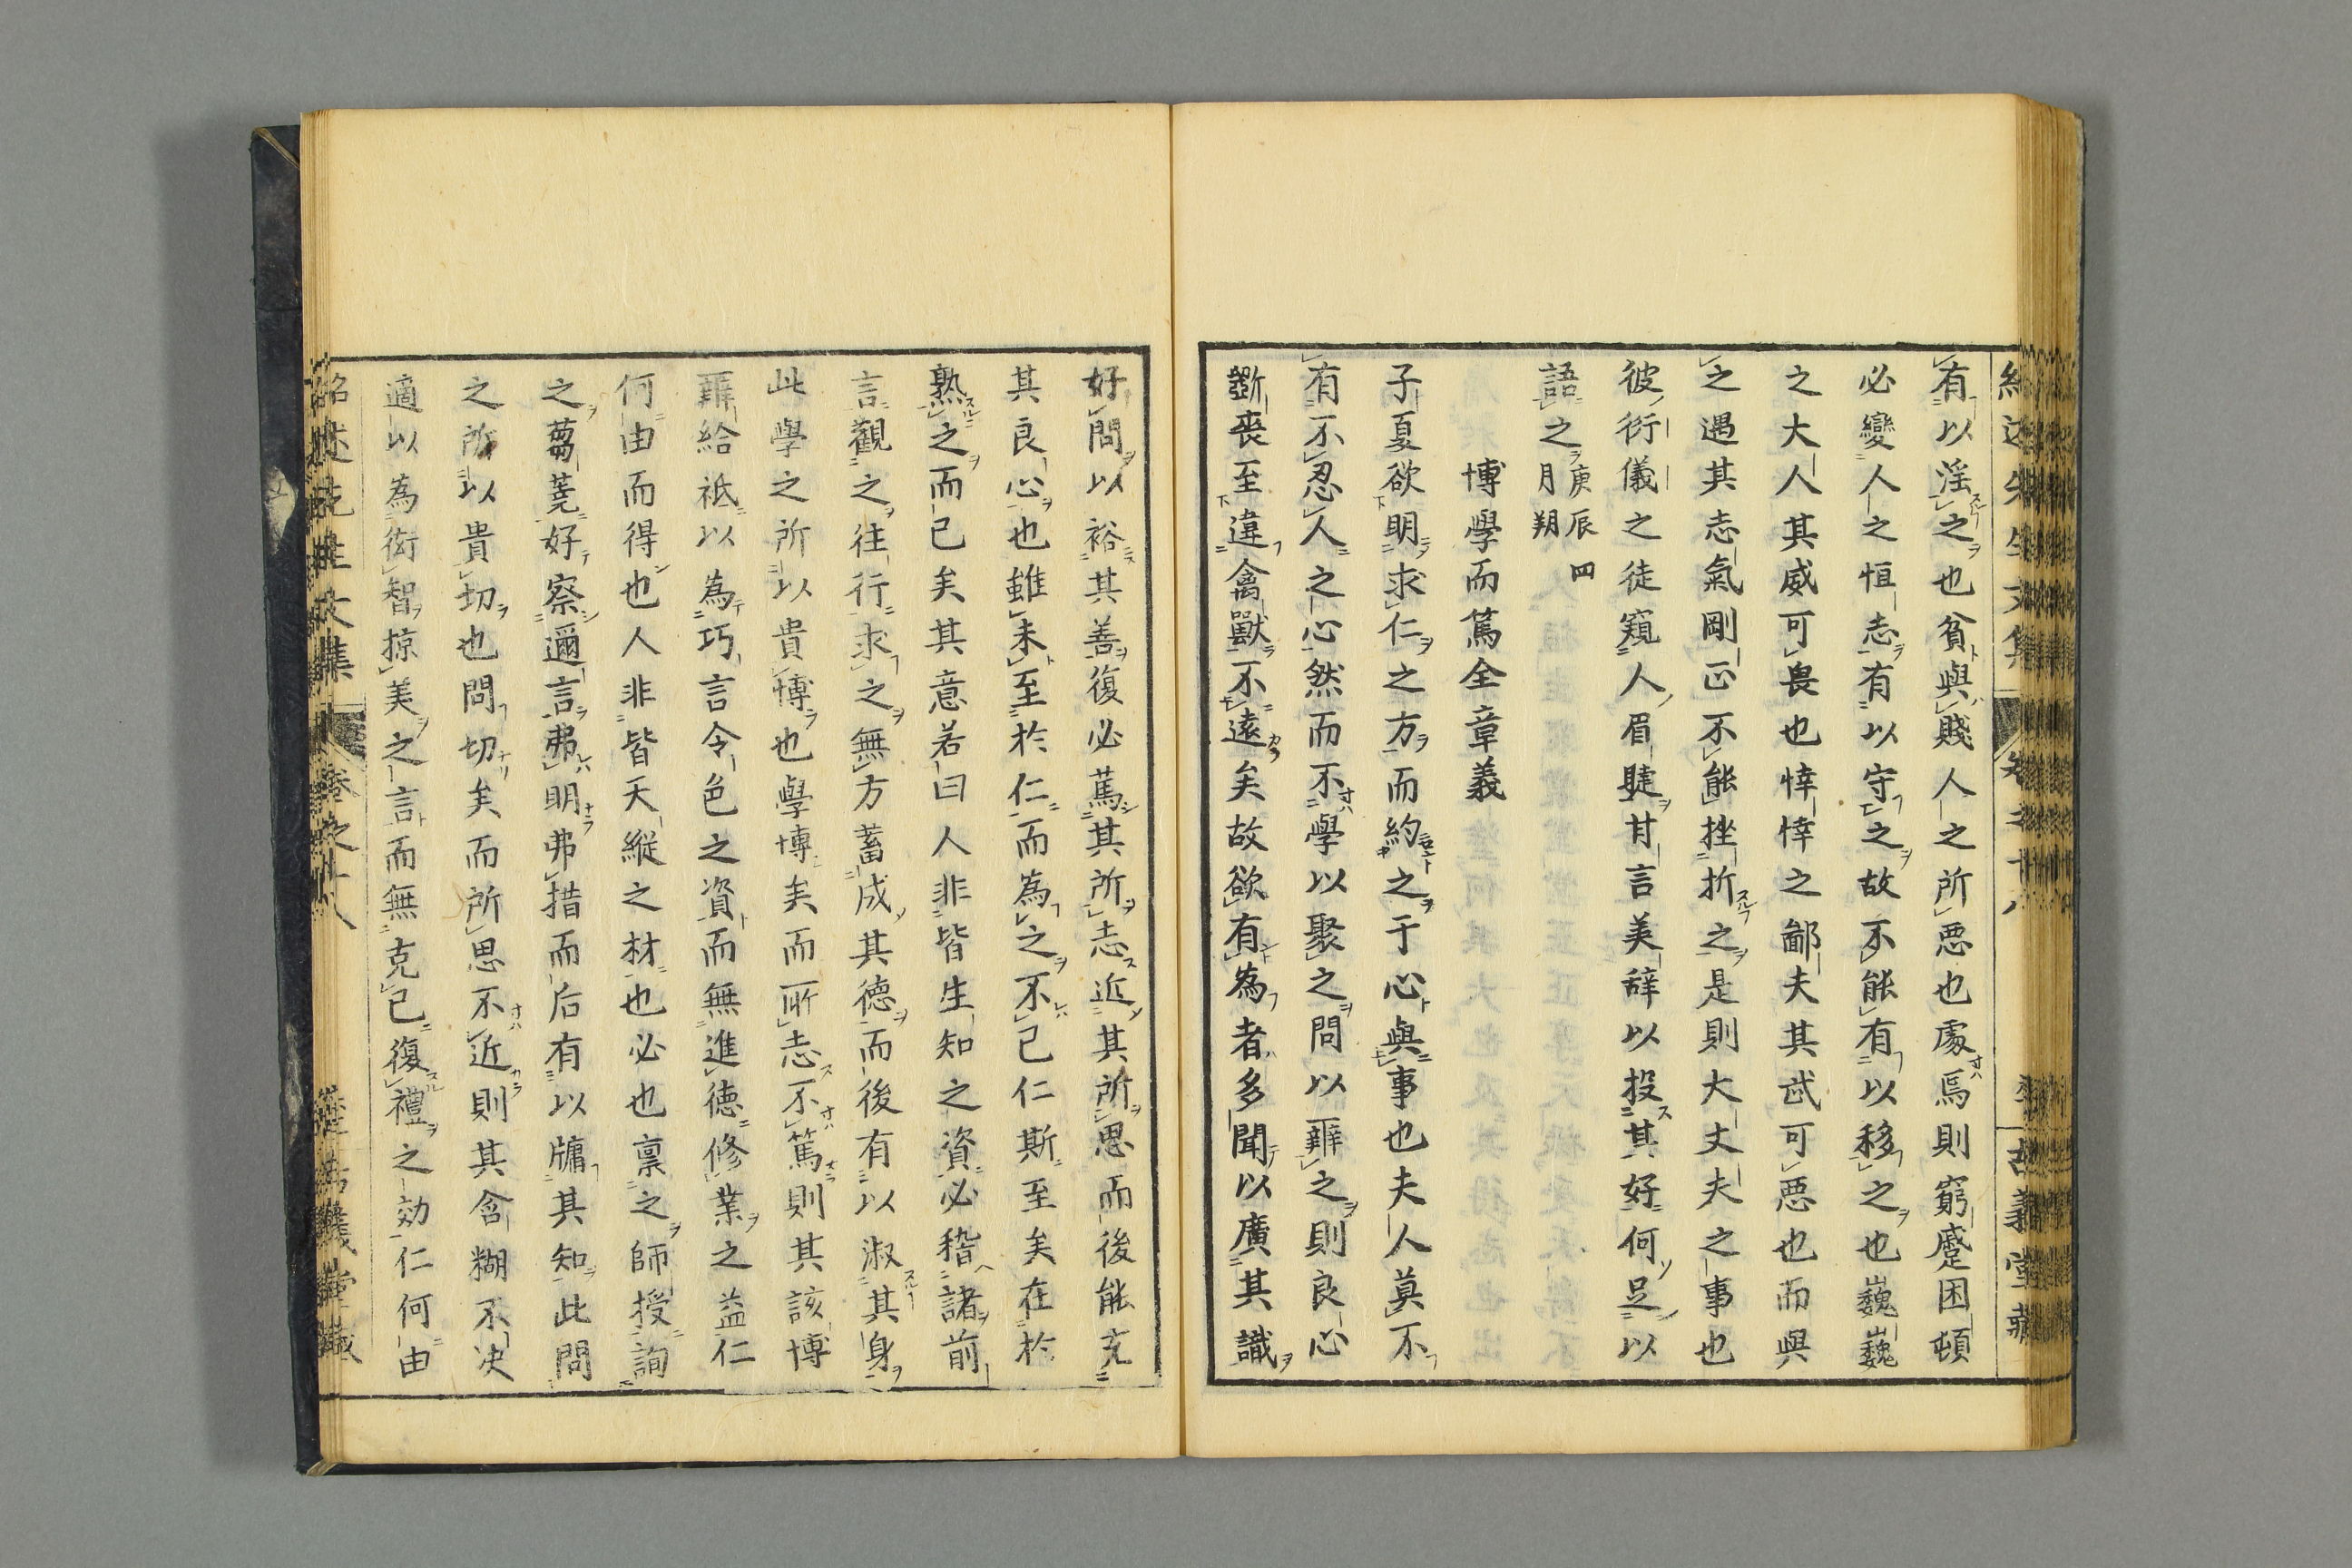 有以淫之也貧與賤人之所惡也處焉則窮蹙困頓
必變人之恒志有以守之故不能有以移之也巍巍
之大人其威可畏也悻悻之鄙夫其武可惡也而與
之遇其志氣剛正不能挫折之是則大丈夫之事也
彼衍儀之徒窺人眉睫甘言美辭以投其好何足以
語之庚辰四月朔
博學而篤全章義
子夏欲明求仁之方而約之于心與事也夫人莫不
有不忍人之心然而不學以聚之問以辨之則良心
斲喪至違禽獸不遠矣故欲有為者多聞以廣其識
好問以裕其善復必篤其所志近其所思而後能充
其良心也雖未至於仁而為之不已仁斯至矣在於
熟之而已矣其意若曰人非皆生知之資必稽諸前
言觀之往行求之無方蓄成其德而後有以淑其身
此學之所以貴博也學博矣而所志不篤則其該博
辨給祗以為巧言令色之資而無進德修業之益仁
何由而得也人非皆天縱之材也必也稟之師授詢
之蒭蕘好察邇言弗明弗措而后有以牖其知此問
之所以貴切也問切矣而所思不近則其含糊不决
適以為衒智掠美之言而無克己復禮之効仁何由
紹述先生文集 卷之十八 古義堂藏